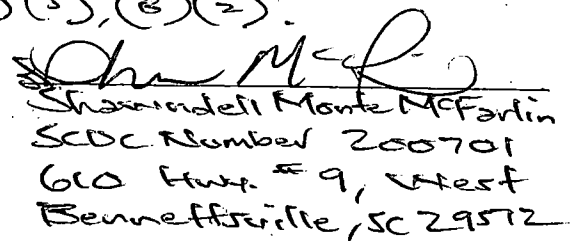 )(5), (B)(2).
Monte McFarlin
SCDC Number 200701
610 Hwy. # 9, West
Bennettsville, SC 29512